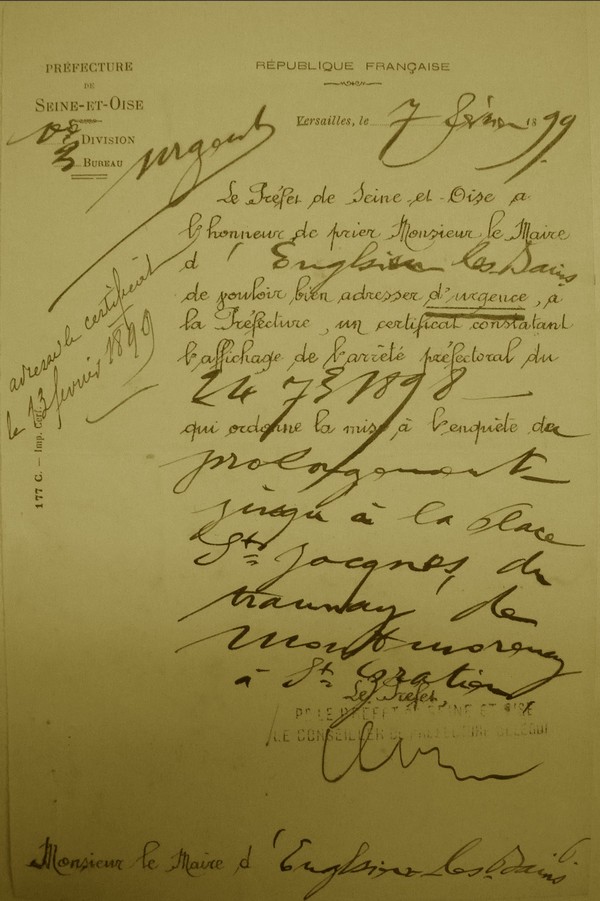 PRÉFECTURE
DE
SEINE-ET-OISE
DIVISION
3
BUREAU
urgent
RÉPUBLIQUE FRANÇAISE
Versailles, le 7 février 1899
Le Préfet de Seine-et-Oise a
l'honneur de prier Monsieur le Maire
d'Enghien les Bains
de vouloir bien adresser d'urgence, à
la Préfecture, un certificat constatant
l'affichage de l'arrêté préfectoral du
qui ordonne la mise à l'enquête du
prolongement
jusqu'à la place
St Jacques, du
tramway de
Montmorency
à St Gratien
Le Préfet,
Pr LE PRÉFET DE SEINE ET OISE
LE CONSEILLER DE PRÉFECTURE DÉLÉGUÉ
adressé le certificat
le 13 février 1899
177 C. — Imp. Cerf.
Monsieur le Maire d'Enghien les Bains